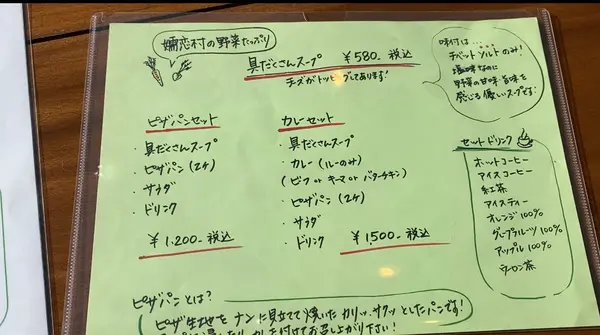 嬬恋村の野菜たっぷり
具だくさんスープ ¥580- 税込
チーズがトッピングしてあります!
味付は…
チベットソルトのみ!
塩味なのに
野菜の甘味・旨味を
感じる優しいスープです!
ピザパンセット
・具だくさんスープ
・ピザパン(2ヶ)
・サラダ
・ドリンク
¥1,200- 税込
カレーセット
・具だくさんスープ
・カレー(ルーのみ)
(ビーフ or キーマ or バターチキン)
・ピザパン(2ヶ)
・サラダ
・ドリンク
¥1,500- 税込
セットドリンク
ホットコーヒー
アイスコーヒー
紅茶
アイスティー
オレンジ100%
グレープフルーツ100%
アップル100%
ウーロン茶
ピザパンとは?
ピザ生地をナンに見立てて焼いたカリッ、サクッとしたパンです!
付けてお召し上がり下さい!